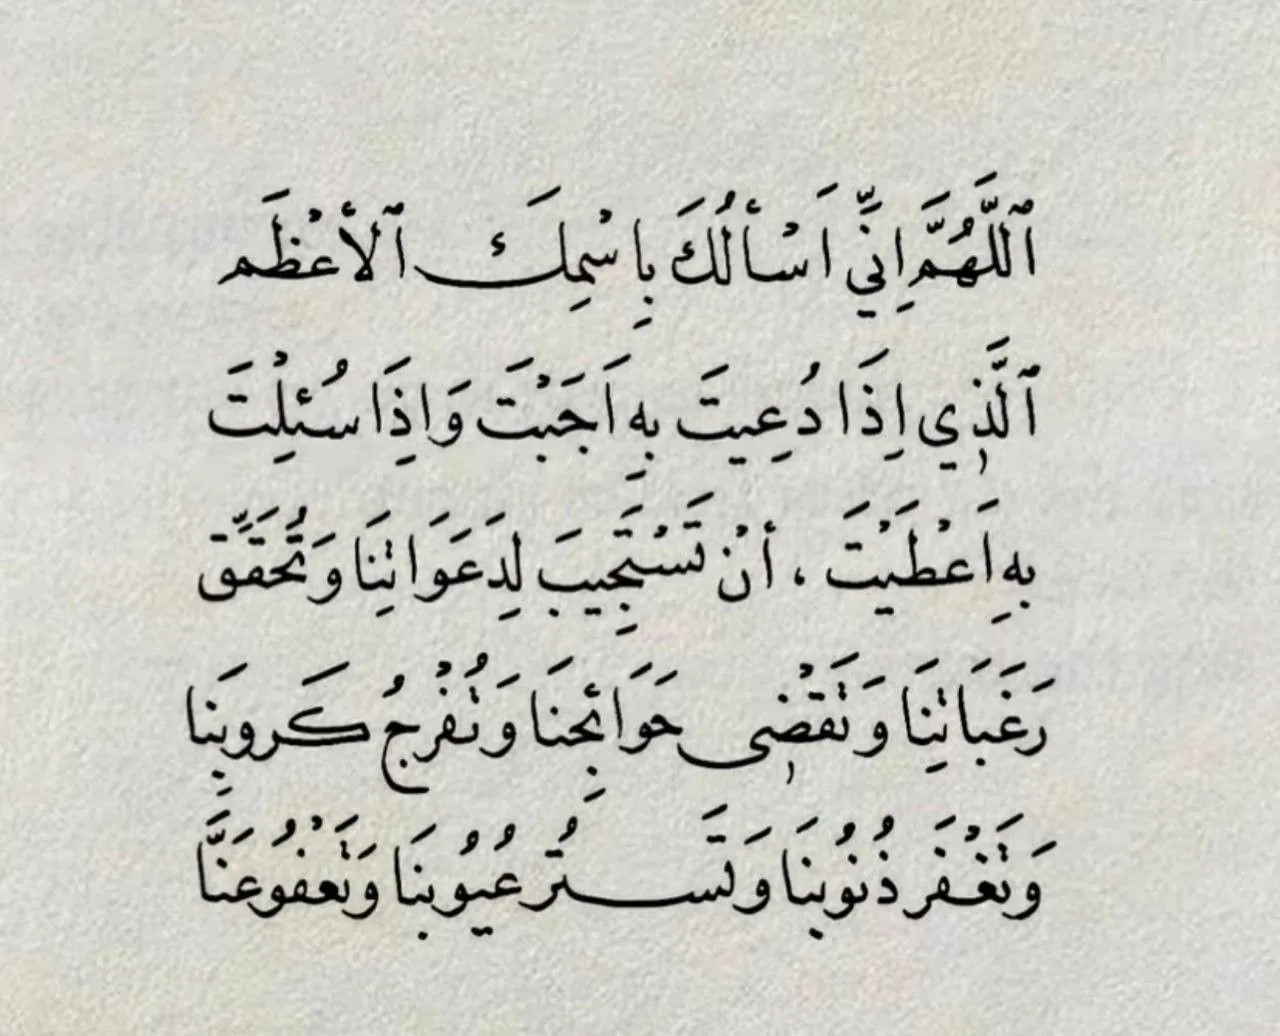 ٱللَّهُمَّ اِنِّي اَسْأَلُكَ بِاسْمِكَ ٱلأَعْظَم
ٱلَّذِي اِذَا دُعِيتَ بِهِ اَجَبْتَ وَاِذَا سُئِلْتَ
بِهِ اَعْطَيْتَ ، أَنْ تَسْتَجِيبَ لِدَعَوَاتِنَا وَتُحَقِّقَ
رَغَبَاتِنَا وَتَقْضِى حَوَائِجِنَا وَتُفْرِجُ كَروبِنَا
وَتَغْفَر ذُنُوبنَا وَتَستُر عُيُوبنَا وَتَعْفُو عَنَّا